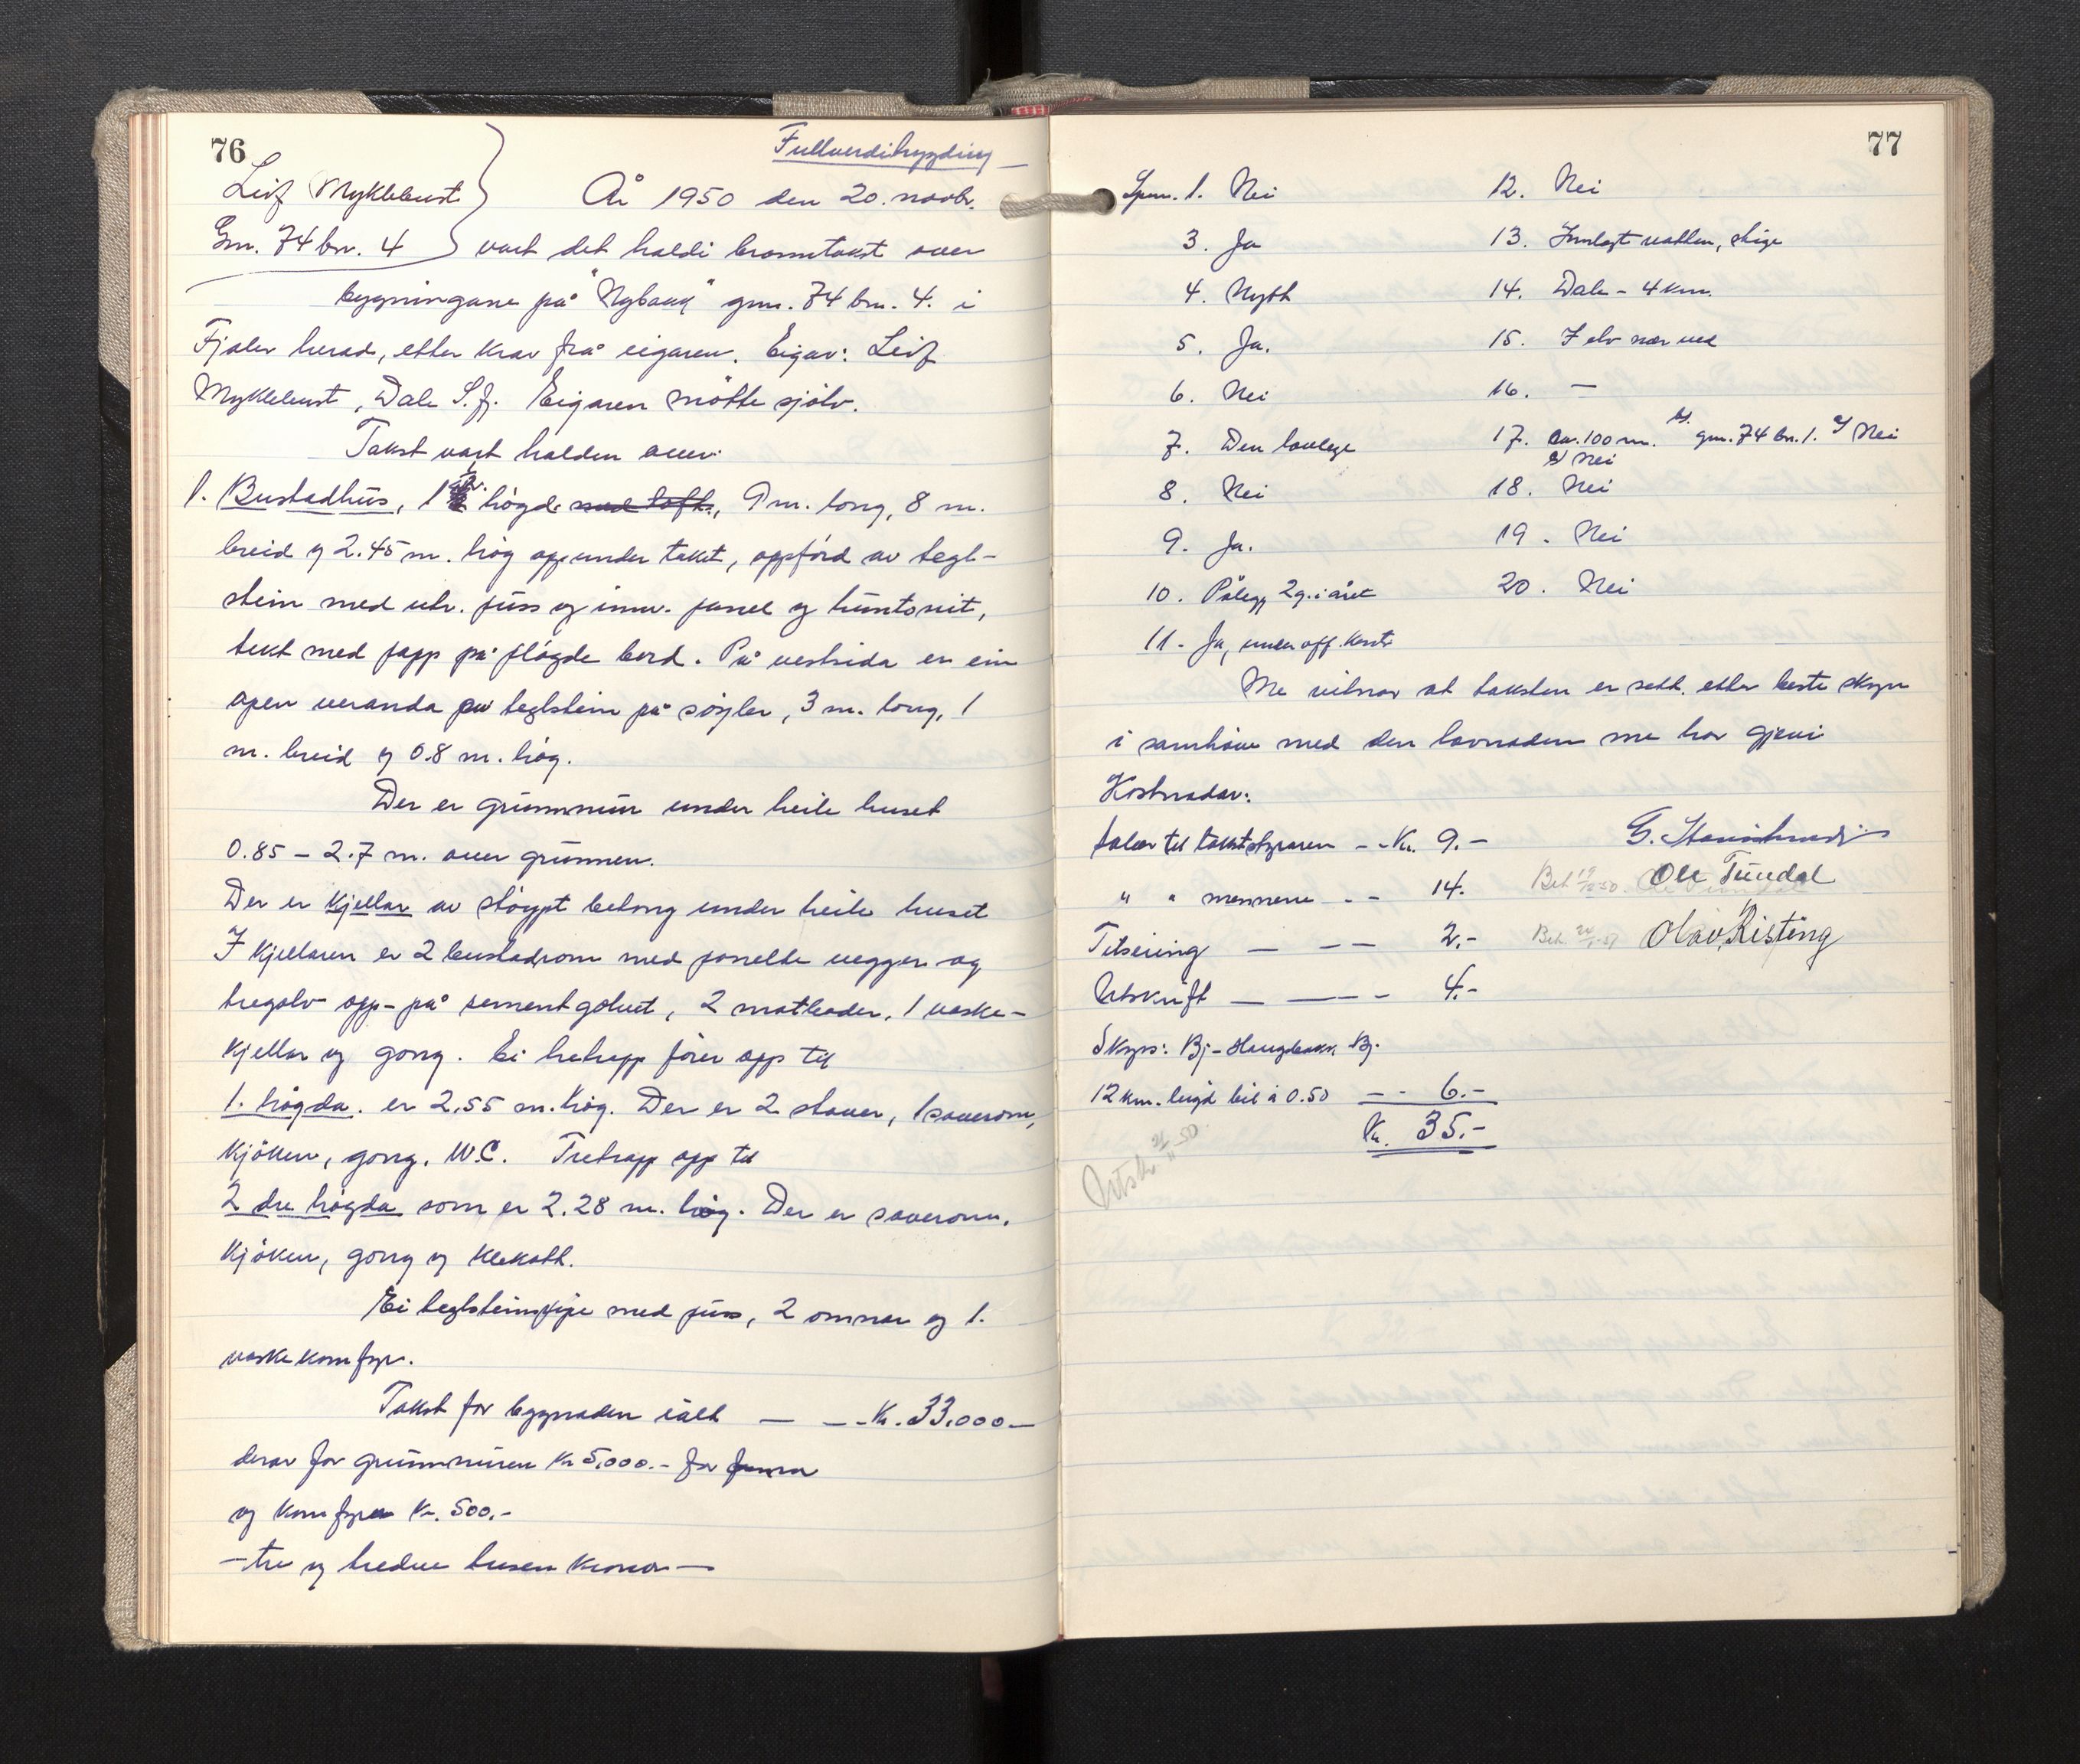 76
Fullverditrygding
Leif Myklebust
År 1950 den 20. novbr.
Gnr. 74 bnr. 4
vart det haldi branntakst over
bygningane på "Nybakk" gnr. 74 bnr. 4. i
Fjaler herad, etter krav frå eigaren. Eigar: Leif
Myklebust, Dale S.fj. Eigaren møtte sjølv.
Takst vart halden over:
1. Bustadhus, 1 høgde med loft, 9 m. long, 8 m.
breid og 2.45 m. høg opp under taket, oppførd av tegl-
stein med utv. puss og innv. panel og huntonit,
tekt med papp på pløgde bord. På vestsida er ein
open veranda av teglstein på søyler, 3 m. long, 1
m. breid og 0.8 m. høg.
Der er grunnmur under heile huset
0.85 – 2.7 m. over grunnen.
Der er kjellar av støypt betong under heile huset
I kjellaren er 2 bustadrom med panelte vegger og
tregolv opp-på sementgolvet, 2 matboder, 1 vaske-
kjellar og gong. Ei tretrapp fører opp til
1. høgda. er 2,55 m. høg. Der er 2 stover, 1 soverom,
kjøken, gong, W.C. Tretrapp opp til
2 dre høgda som er 2.28 m. høg. Der er soverom,
kjøken, gong og klekott.
Ei teglsteinspipe med puss, 2 omnar og 1.
vaskekomfyr.
Takst for bygnaden ialt — — - Kr. 33.000 —
derav for grunnmuren Kr 5.000.- for
og komfyra Kr. 500.-
— tre og tredve tusen kroner —
77
Spm. 1. Nei
3. Ja
4. Nytt
5. Ja.
6. Nei
7. Den lovlege
8. Nei
9. Ja.
10. Pålegg 2 g. i året
11 - Ja, under off. kontr
12. Nei
13. Innlagt vatten, stige
14. Dale - 4 km.
15. I elv nær ved
16. —
17. ca. 100 m. gnr. 74 bnr. 1. Nei
Nei
18. Nei
19. Nei
20. Nei
Me vitnar at taksten er sett etter beste skyn
i samhøve med den lovnaden me har gjevi
Kostnadar:
Salær til takststyraren - - Kr. 9.-
" " mennene - - 14.
Ole Tundal
Tilseiing — — — 2.-
Olav Risting
Utskrift — — - 4.-
Skyss: Bj - Haugbakk Bj.
12 km. leigd bil à 0.50 — - 6.-
Kr. 35.-
Utskr. 21/11 50.